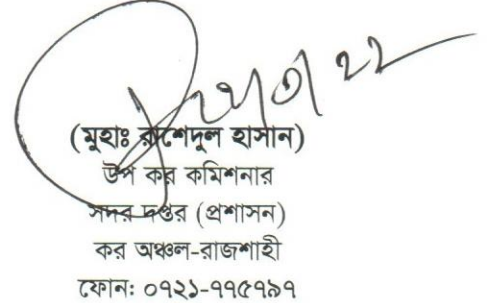 (মুহাঃ রাশেদুল হাসান)
উপ কর কমিশনার
সদর দপ্তর (প্রশাসন)
কর অঞ্চল-রাজশাহী
ফোন: ০৭২১-৭৭৫৭৯৭